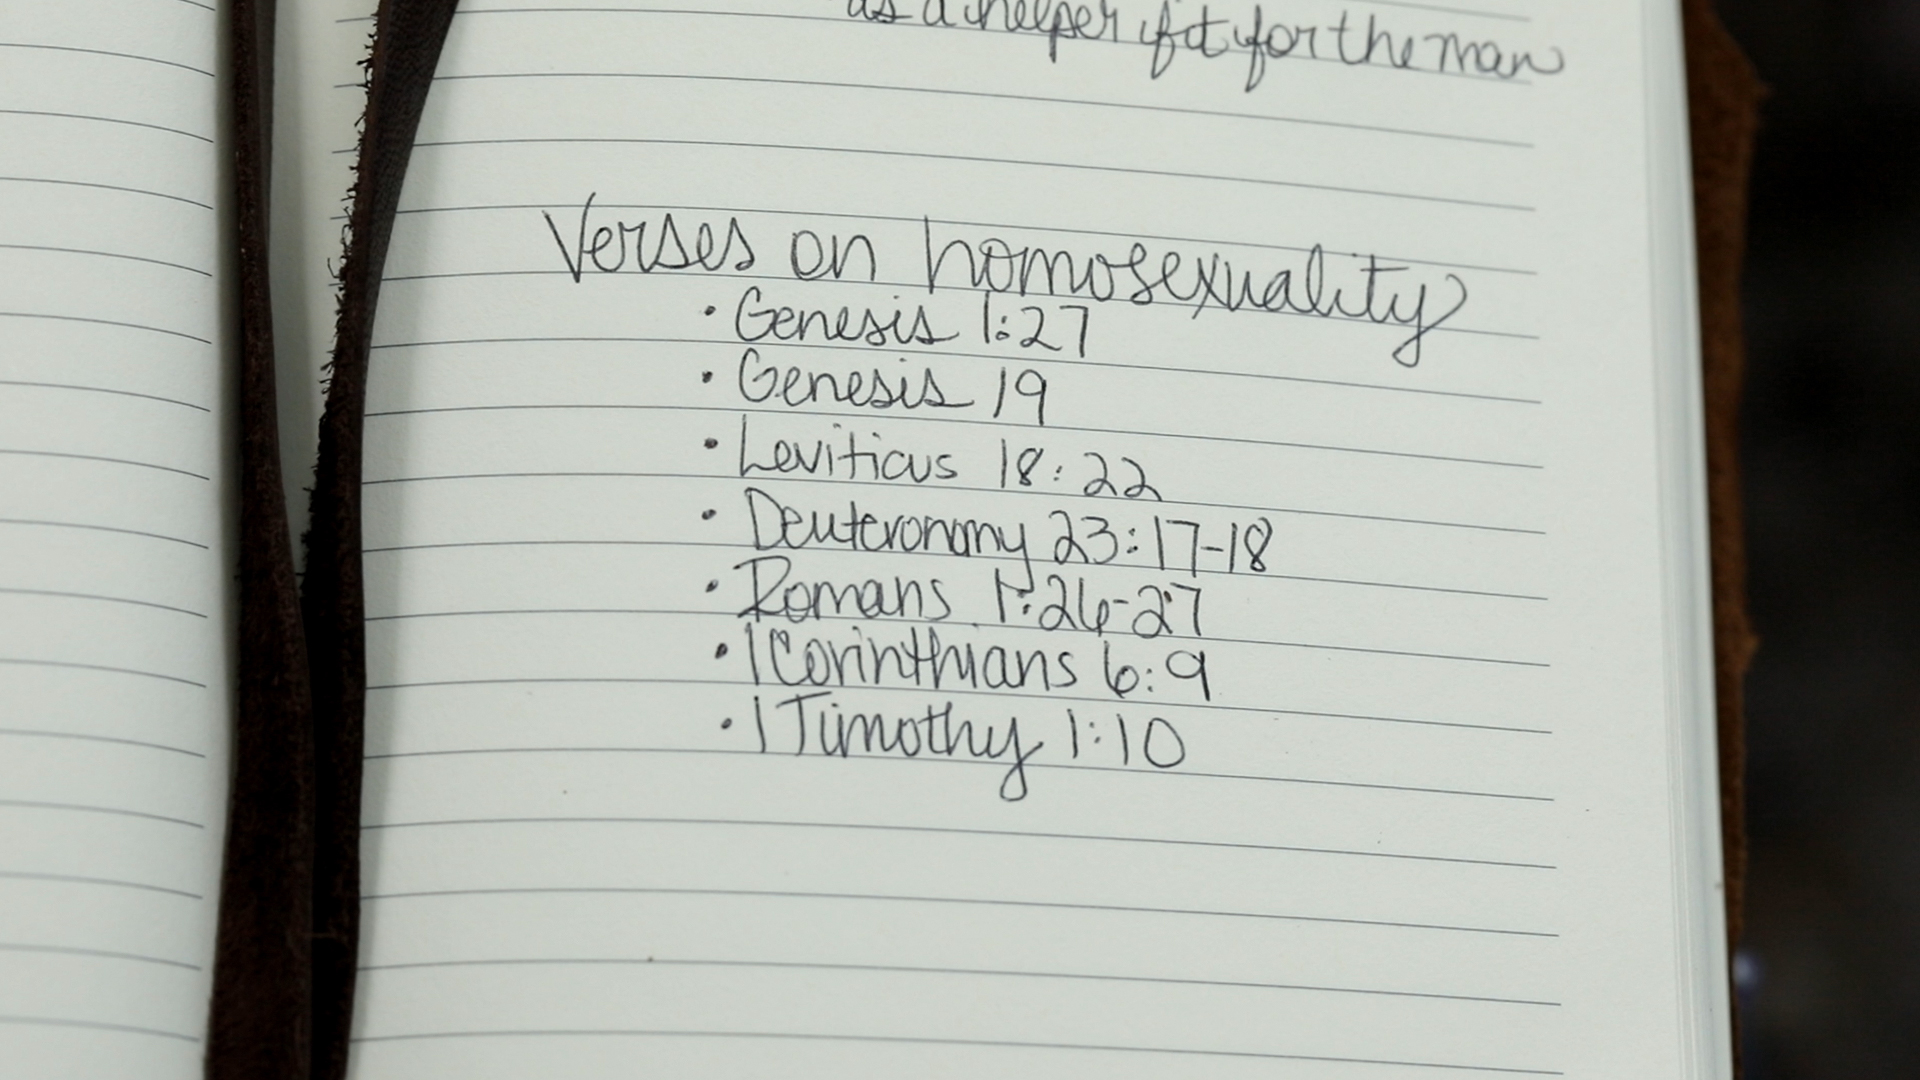 as a helper fit for the man
Verses on homosexuality
• Genesis 1:27
• Genesis 19
• Leviticus 18:22
• Deuteronomy 23:17-18
• Romans 1:26-27
• 1 Corinthians 6:9
• 1 Timothy 1:10